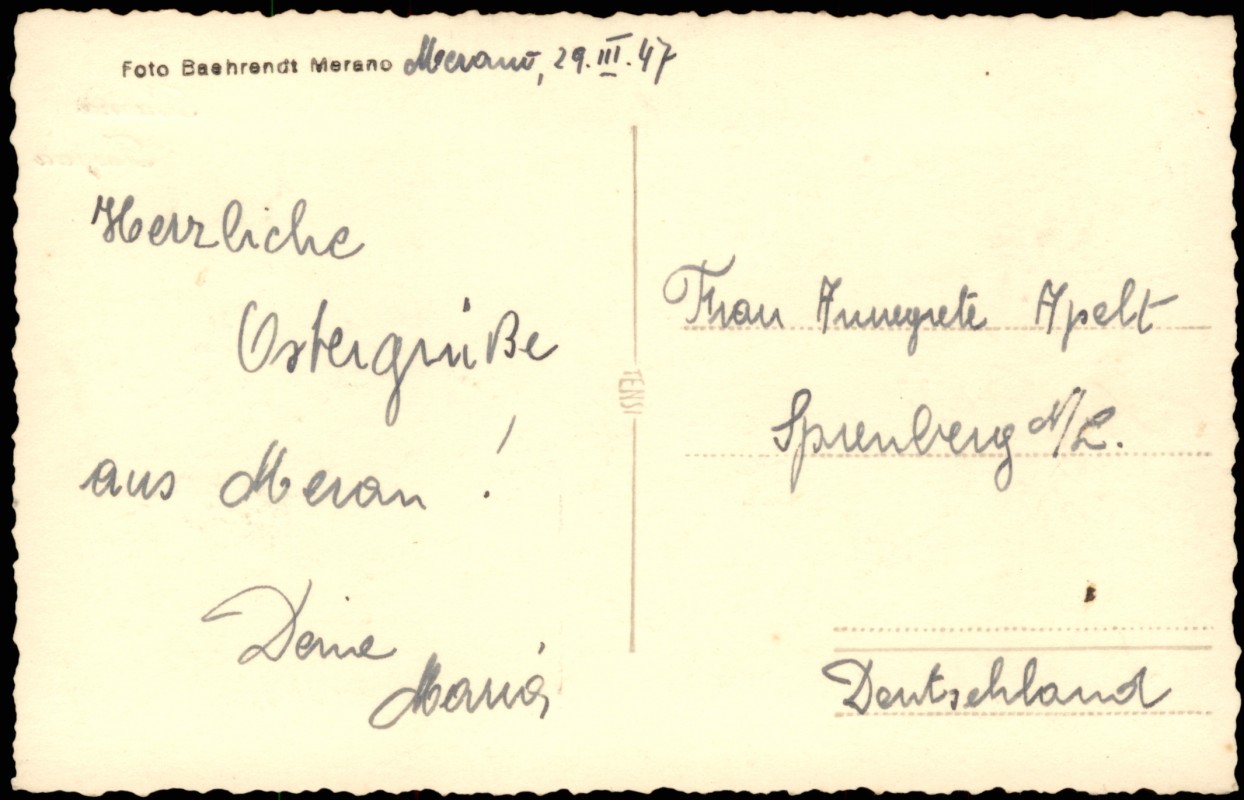 Foto Baehrendt Merano Meran, 29.III.47
Herzliche
Ostergrüße
aus Meran!
Deine
Maria
TENSI
Frau Annegrete Apelt
Spremberg N/L.
Deutschland